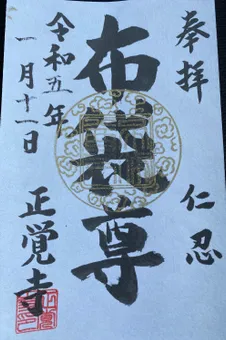 奉拝
仁忍
布袋尊
令和五年
一月十一日
正覚寺